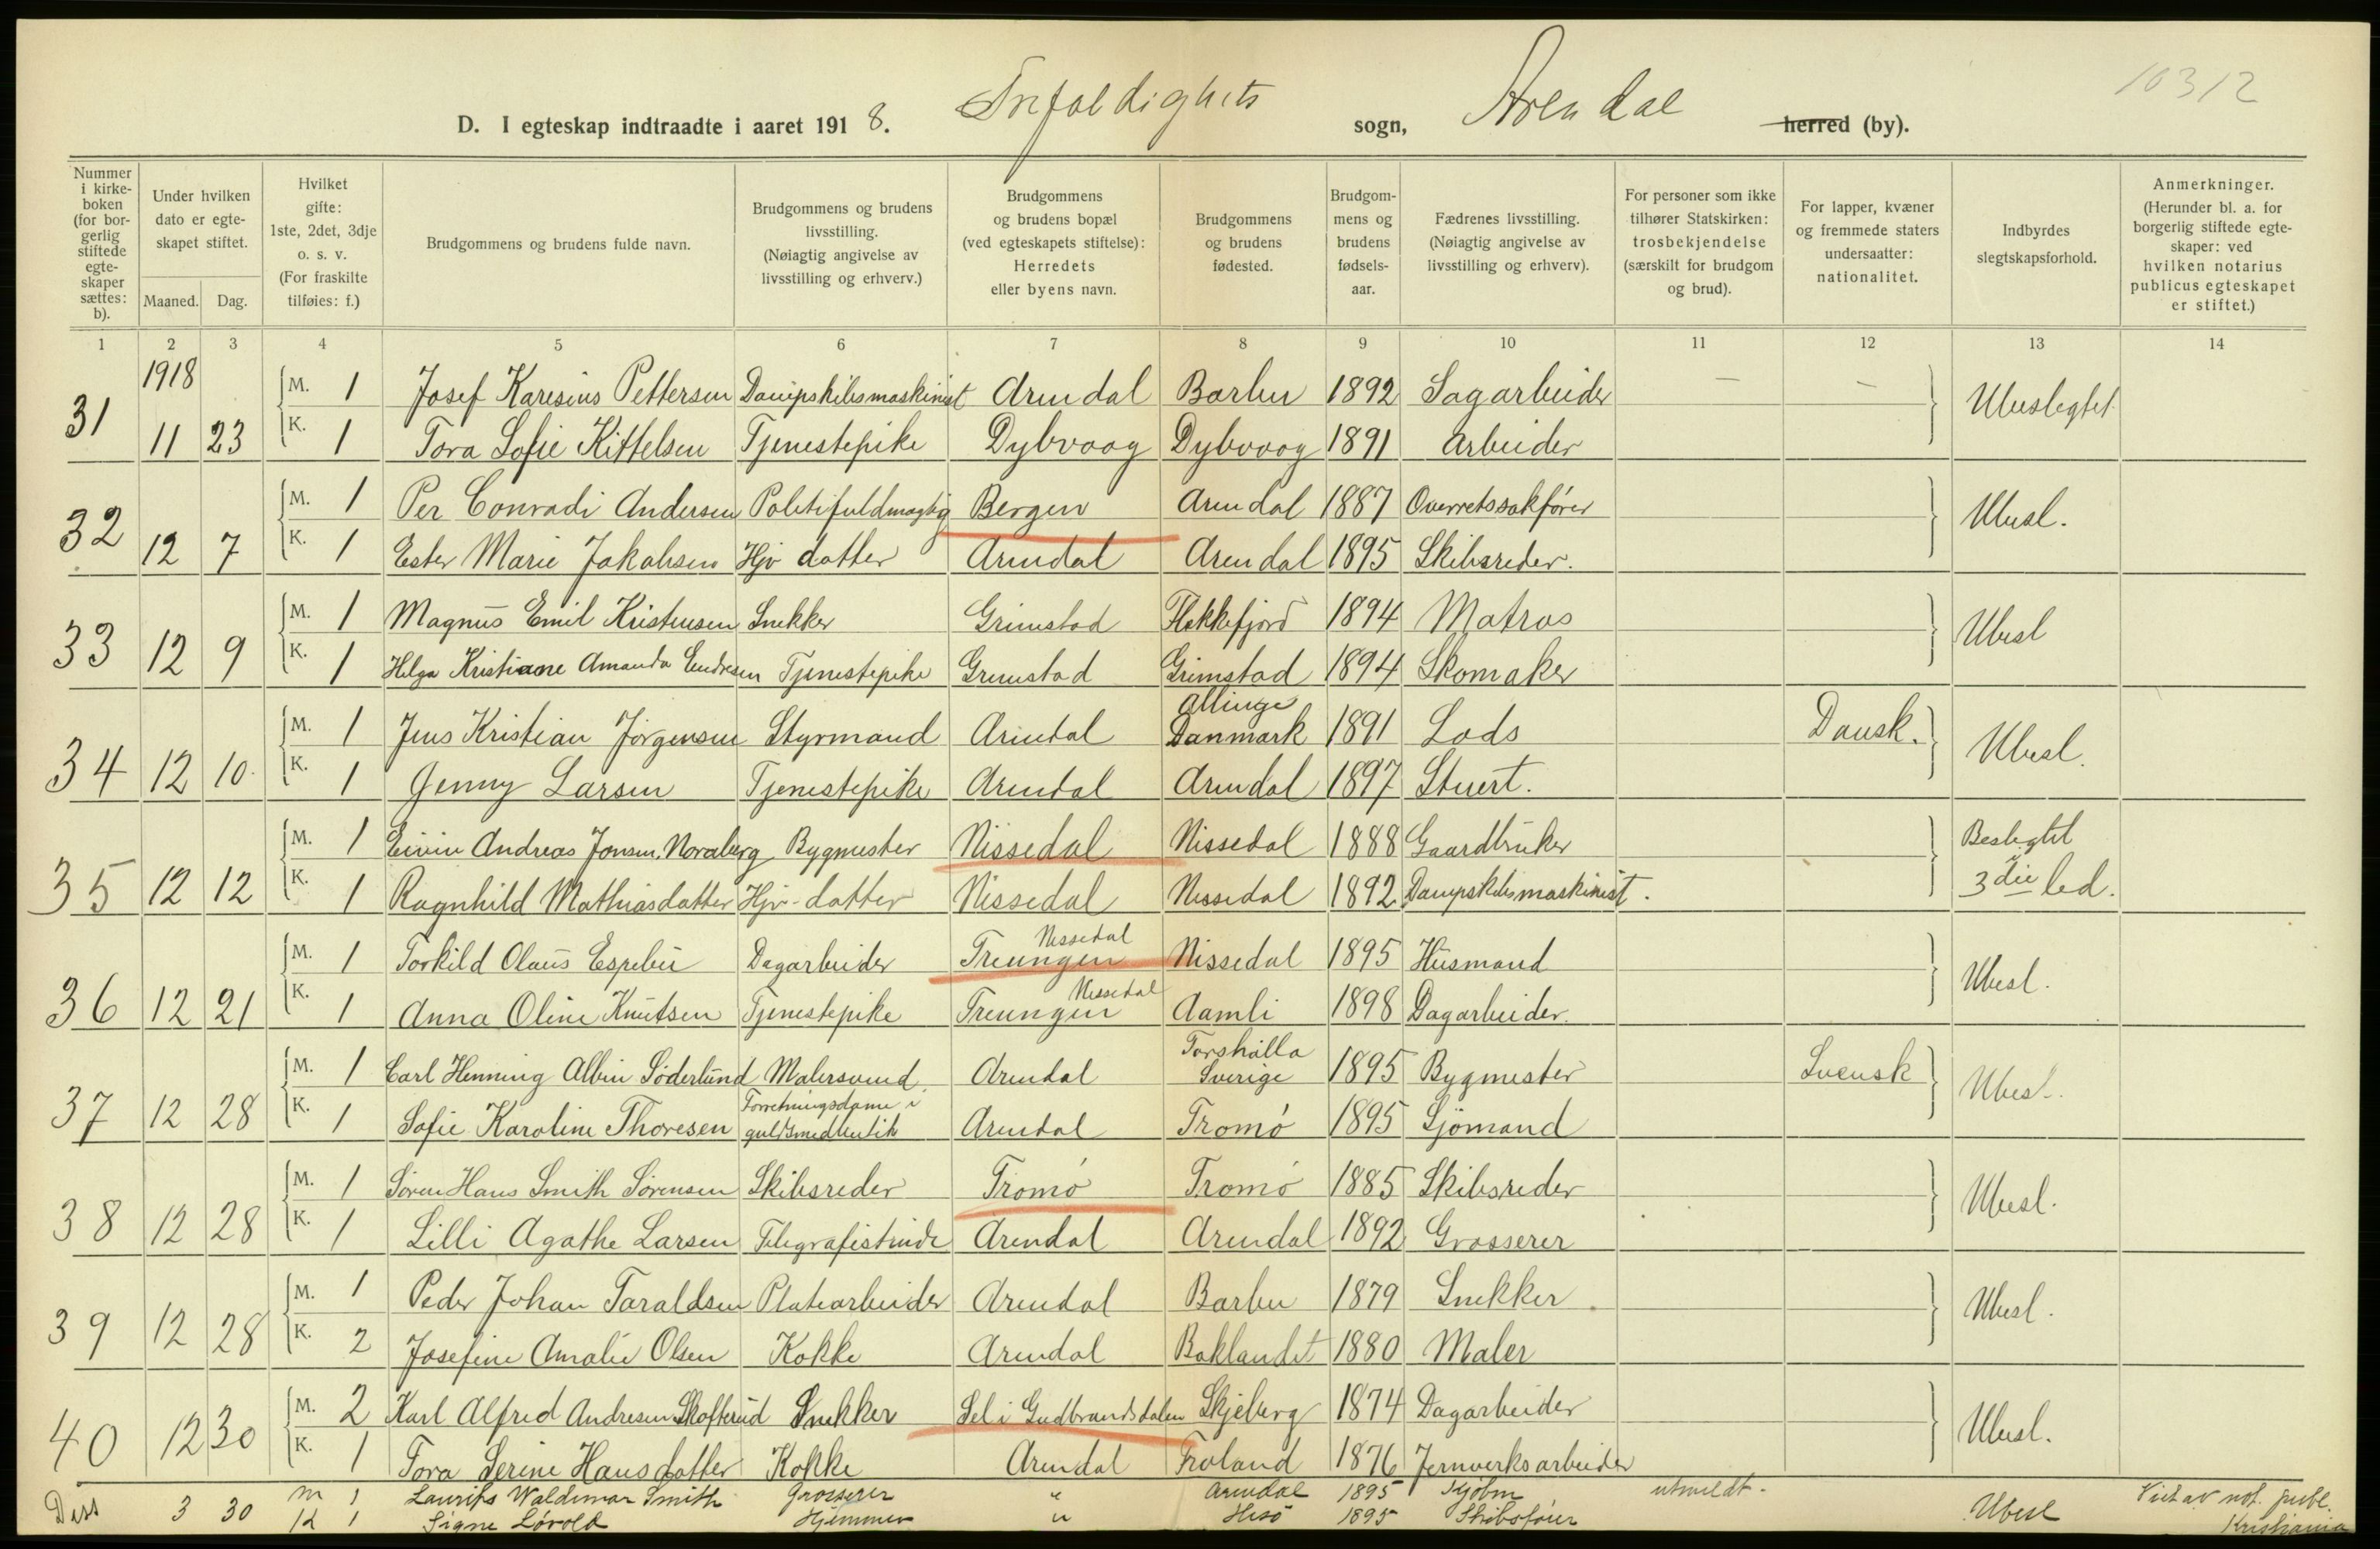 10312
D. I egteskap indtraadte i aaret 1918. Trefoldighets sogn, Arendal herred (by).
Nummer i kirkeboken (for borgerlig stiftede egteskaper sættes: b).
Under hvilken dato er egteskapet stiftet.
Maaned. Dag.
Hvilket gifte: 1ste, 2det, 3dje o. s. v. (For fraskilte tilføies: f.)
Brudgommens og brudens fulde navn.
Brudgommens og brudens livsstilling. (Nøiagtig angivelse av livsstilling og erhverv.)
Brudgommens og brudens bopæl (ved egteskapets stiftelse): Herredets eller byens navn.
Brudgommens og brudens fødested.
Brudgommens og brudens fødselsaar.
Fædrenes livsstilling. (Nøiagtig angivelse av livsstilling og erhverv).
For personer som ikke tilhører Statskirken: trosbekjendelse (særskilt for brudgom og brud).
For lapper, kvæner og fremmede staters undersaatter: nationalitet.
Indbyrdes slegtskapsforhold.
Anmerkninger. (Herunder bl. a. for borgerlig stiftede egteskaper: ved hvilken notarius publicus egteskapet er stiftet.)
1 2 3 4 5 6 7 8 9 10 11 12 13 14
1918
M. 1 Josef Karesius Pettersen Dampskibsmaskinist Arendal Barbu 1892 Sagarbeider — —
31 11 23 K. 1 Tora Sofie Kittelsen Tjenestepike Dybvaag Dybvaag 1891 Arbeider Ubeslegtet
M. 1 Per Conradi Andersen Politifuldmægtig Bergen Arendal 1887 Overretssakfører
32 12 7 K. 1 Ester Marie Jakobsen Hjv datter Arendal Arendal 1895 Skibsreder. Ubesl.
M. 1 Magnus Emil Kristensen Snekker Grimstad Flekkefjord 1894 Matros
33 12 9 K. 1 Helga Kristiane Amanda Endresen Tjenestepike Grimstad Grimstad 1894 Skomaker Ubesl
M. 1 Jens Kristian Jørgensen Styrmand Arendal Allinge Danmark 1891 Lods Dansk.
34 12 10. K. 1 Jenny Larsen Tjenestepike Arendal Arendal 1897 Stuert. Ubesl.
M. 1 Eivin Andreas Jonsen Noraberg Bygmester Nissedal Nissedal 1888 Gaardbruker
35 12 12 K. 1 Ragnhild Mathiasdatter Hjv-datter Nissedal Nissedal 1892 Dampskibsmaskinist. Beslegtet 3die led.
M. 1 Torkild Olaus Espebu Dagarbeider Treungen Nissedal Nissedal 1895 Husmand
36 12 21 K. 1 Anna Oline Knutsen Tjenestepike Treungen Nissedal Aamli 1898 Dagarbeider. Ubesl.
M. 1 Carl Henning Albin Söderlund Malersvend. Arendal Torshälla Sverige 1895 Bygmester Svensk
37 12 28 K. 1 Sofie Karoline Thoresen Forretningsdame i guldsmedbutik Arendal Tromø 1895 Sjømand Ubesl.
M. 1 Søren Hans Smith Sørensen Skibsreder Tromø Tromø 1885 Skibsreder
38 12 28 K. 1 Lilli Agathe Larsen Telegrafistinde Arendal Arendal 1892 Grosserer Ubesl.
M. 1 Peder Johan Taraldsen Platearbeider Arendal Barbu 1879 Snekker.
39 12 28 K. 2 Josefine Amalie Olsen Kokke Arendal Baklandet 1880 Maler Ubesl.
M. 2 Karl Alfred Andresen Skofterud Snekker Sel i Gudbrandsdalen Skjeberg 1874 Dagarbeider
40 12 30 K. 1 Tora Serine Hansdatter Kokke Arendal Froland 1876 Jernverksarbeider Ubesl.
Diss 3 30 M 1 Laurits Waldemar Smith Grosserer " Arendal 1895 Kjøbm utmeldt. Viet av not. publ.
K 1 Signe Løvold Hjemmev " Hisø 1895 Skibsfører Ubesl Kristiania